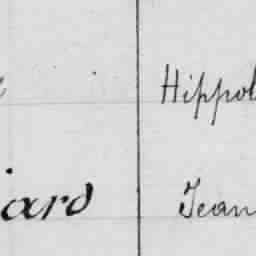 Hippol
iard Jean